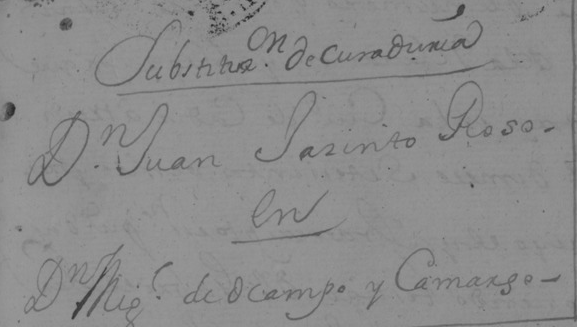 Substituz.on de Curaduria
Dn. Juan Jasinto Roso-
en
Dn Mig.l de Ocampo y Camargo-